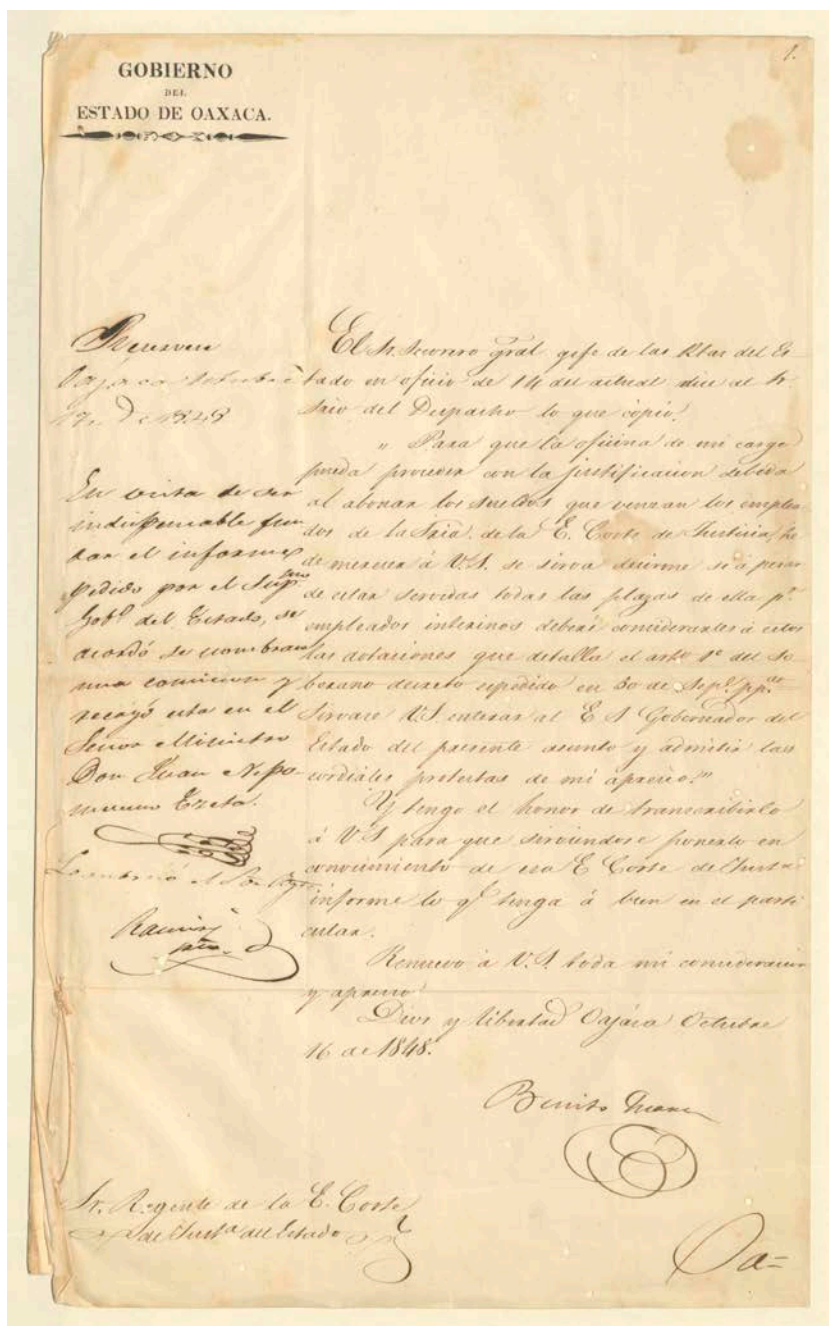 1.
GOBIERNO
DEL
ESTADO DE OAXACA.
Oajaca Octubre
17, de 1848
En vista de ser
indispensable fun
dar el informe
pedido por el Sup.mo
Gob.º del Estado, se
acordó se nombran
una comicion y
recayó esta en el
Señor Ministro
Don Juan Nepo-
muceno
Lo rubricó el
Ramirez
El Sr. Tesorero gral. gefe de las Rtas del Es-
tado en oficio de 14 del actual dice al Sr.
Srio del Despacho lo que copio.
" Para que la oficina de mi cargo
pueda proceder con la justificacion debida
al abonar los sueldos que venzan los emplea-
dos de la Sria. de la E. Corte de Justicia, he
de merecer á V.S. se sirva decirme si á pesar
de estar servidas todas las plazas de ella p.r
empleados interinos deberé considerarles á estos
las dotaciones que detalla el artº 1º del So
berano decreto espedido en 30 de Sep.e pp.do
Sirvase V.S. enterar al E S Gobernador del
Estado del presente asunto y admitir las
cordiales protestas de mi aprecio."
Y tengo el honor de transcribirlo
á V.S. para que sirviendose ponerlo en
conocimiento de esa E. Corte de Justa
informe lo q.e tenga á bien en el parti
cular.
Renuevo á V.S. toda mi consideracion
y aprecio.
Dios y libertad Oajáca Octubre
16 de 1848.
Benito Juarez
Sr. Regente de la E. Corte
de Justa del Estado
Oa=